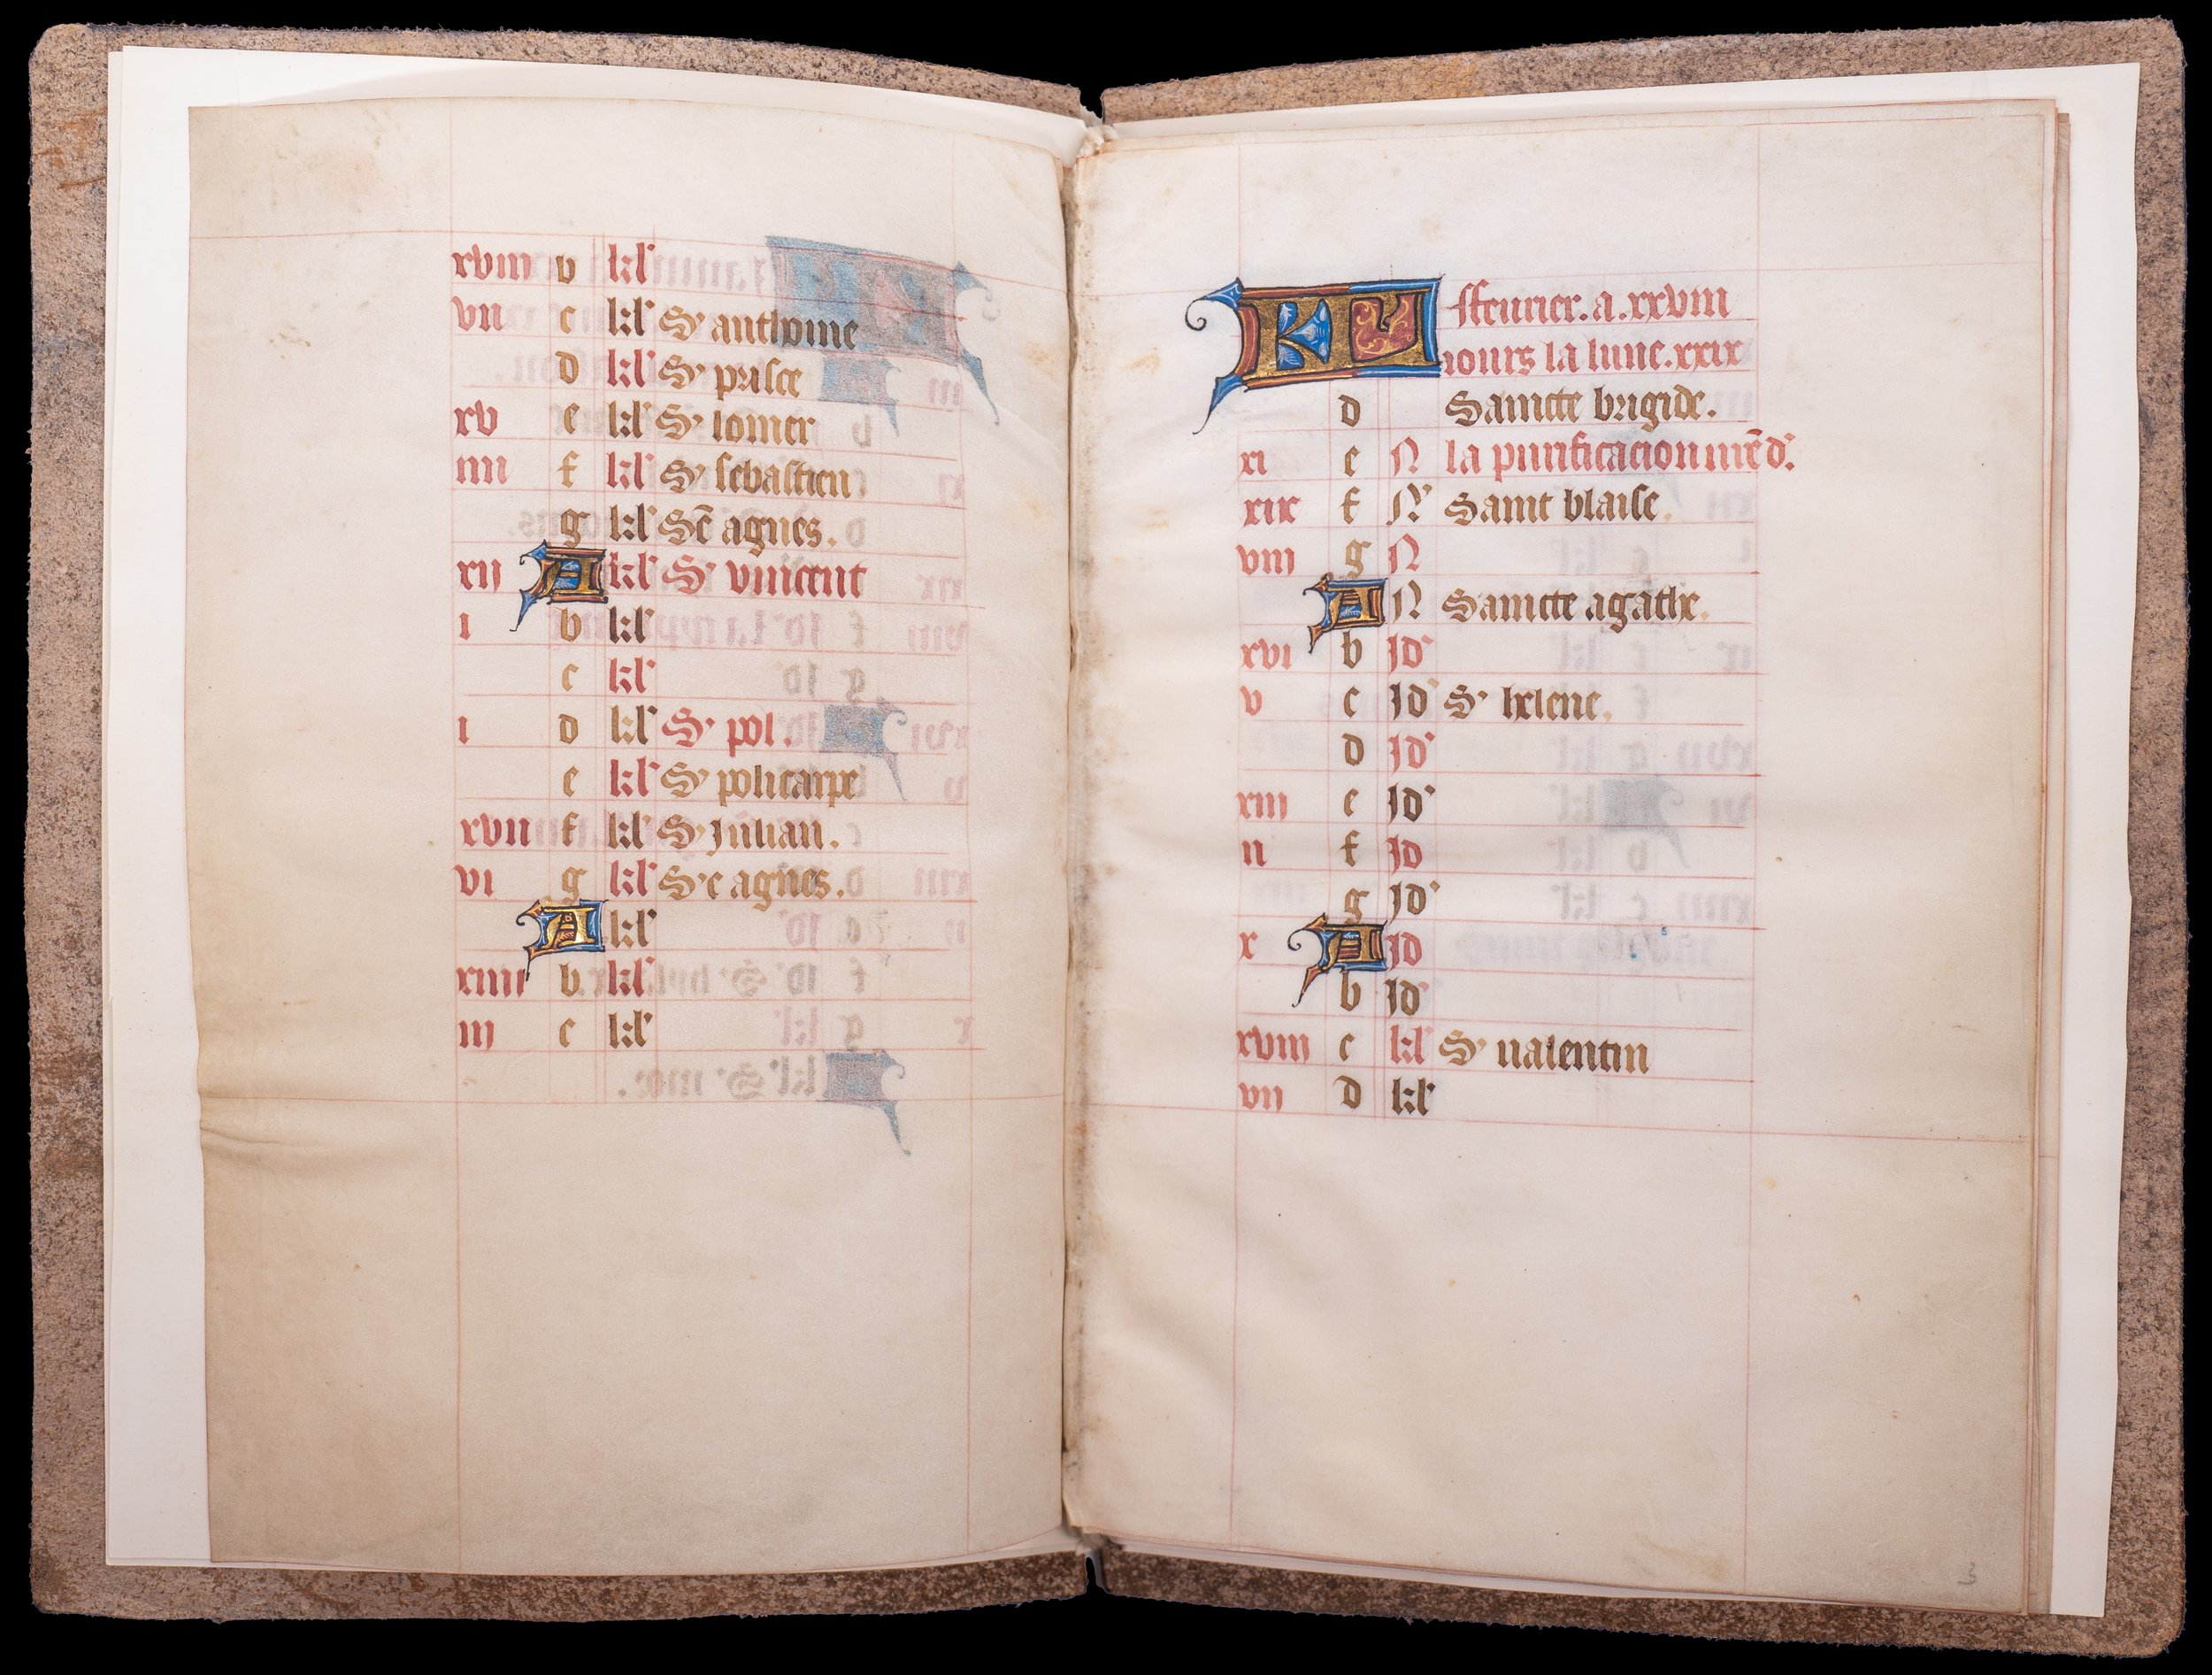 xviii b kl'
vii c kl' S' anthoine
d kl' S' prisce
xv e kl' S' lomer
iiii f kl' S' sebastien
g kl' Sē agnes.
xii A kl' S' vincent
i b kl'
c kl'
i d kl' S' pol.
e kl' S' policarpe
xvii f kl' S' Julian.
vi g kl' S'e agnes.
A kl'
xiiii b kl'
iii c kl'
KL ffeurier. a. xxviii
iours la lune. xxix
d Saincte brigide.
xi e N la purificacion nrē d'.
xix f N' Saint blaise.
viii g N
A N Saincte agathe.
xvi b Id'
v c Id' S' helene.
d Id'
xiii e Id'
ii f Id
g Id'
x A Id
b Id'
xviii c kl' S' ualentin
vii d kl'
3